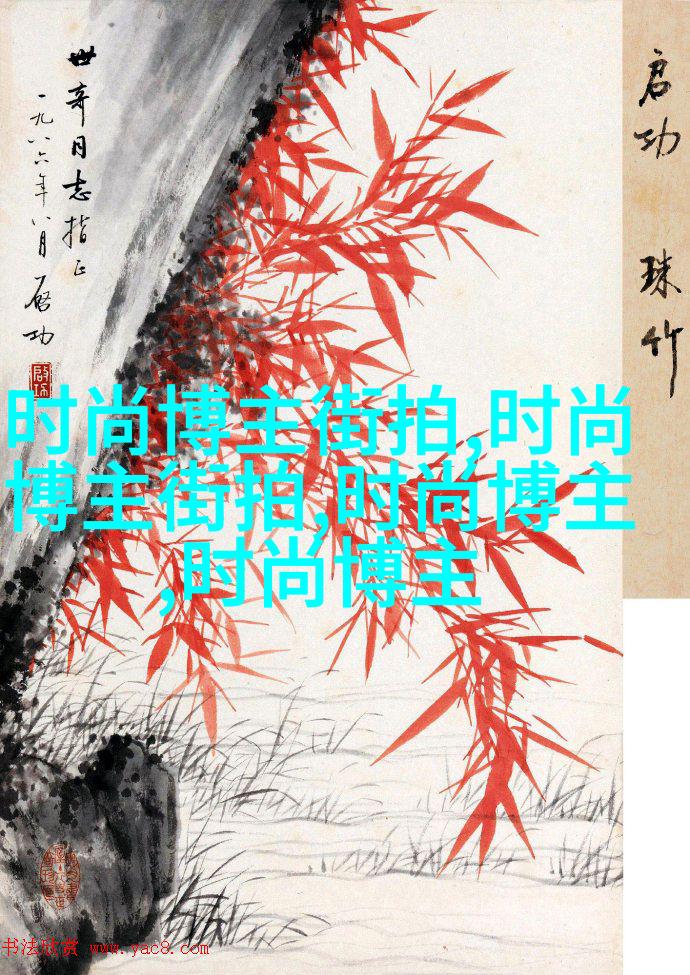 世奇同志指正
一九八六年八月 启功
启功
启功 珠竹
时尚博主街拍,时尚
博主街拍,时尚博主
,时尚博主
书法欣赏 www.yac8.com